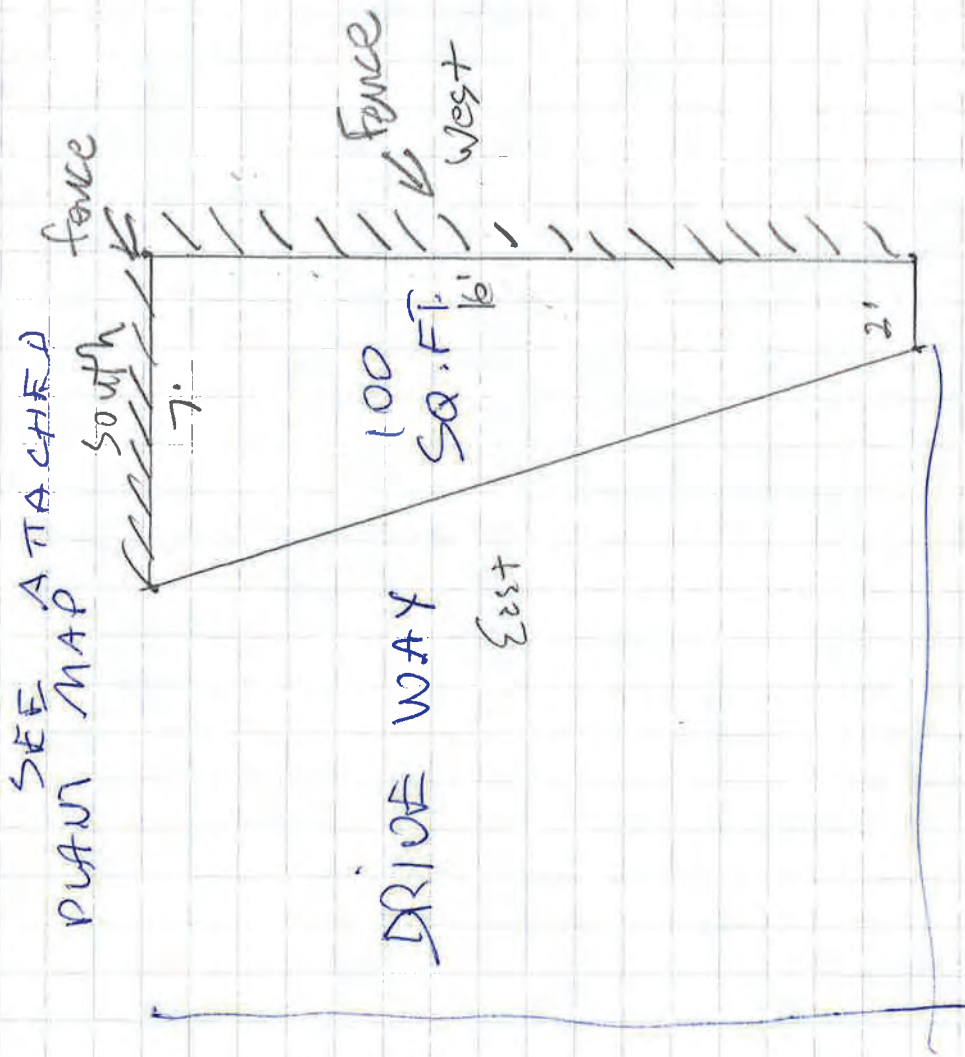 SEE ATTACHED
PLANT MAP
fence
South
7'
Fence
West
100
SQ.FT.
16'
2'
DRIVE WAY
East